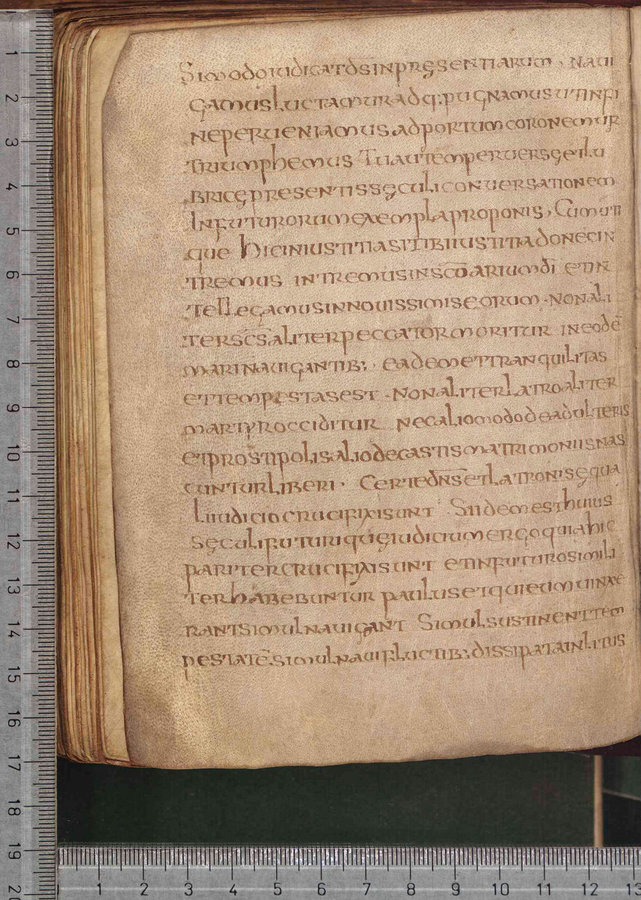 Simodo iudicat ds inpresentiarum, naui
gamus luctamur adq; pugnamus ut infi
ne perueniamus adportum coronemur
triumphemus Tu autem peruerse etlu
brice presentis seculi conuersationem
Infuturorum exempla proponis, Cum uti
que hic iniustitia sit ibi iustitia donec in
tremus intremus insc̄m arium dī etin
tellegamus innouissimis eorum · non ali
ter sc̄s aliter peccator moritur ineodē
mari nauigantib; eadem et tranquilitas
et tempestas est · non aliter latro aliter
martyr occiditur necalio modo deadulteris
et prostipolis alio decastis matrimoniis nas
cuntur liberi · Certe dns et latronis equa
li iudicio crucifixi sunt Si idem est huius
seculi futurique iudicium ergo quia hic
pariter crucifixi sunt et in futuro simili
ter habebuntur paulus et qui eum uinxe
rant simul nauigant Simul sustinent tem
pestatē simul naui fluctib; dissipata in litus